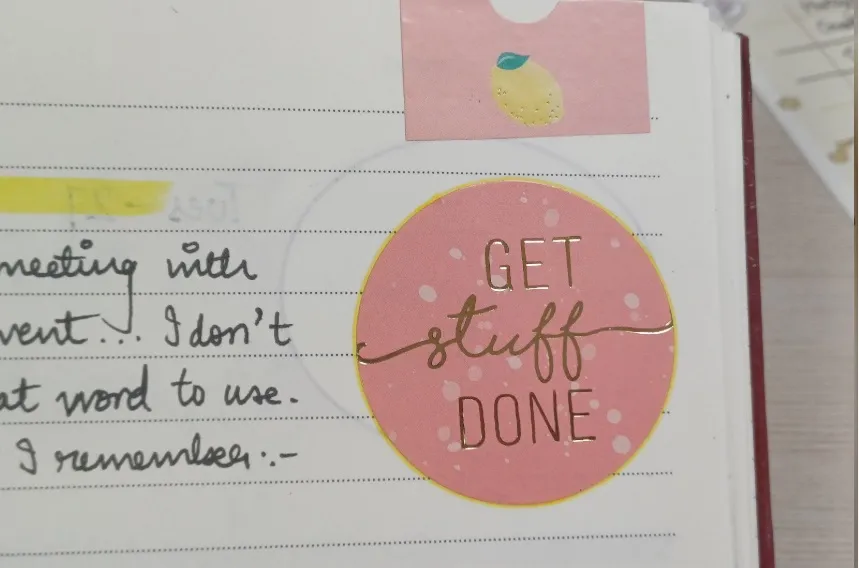 meeting with
vent... I don't
at word to use.
I remember:-
GET
stuff
DONE